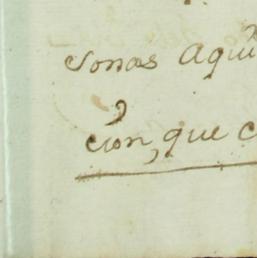 sonas aqui
cion, que c